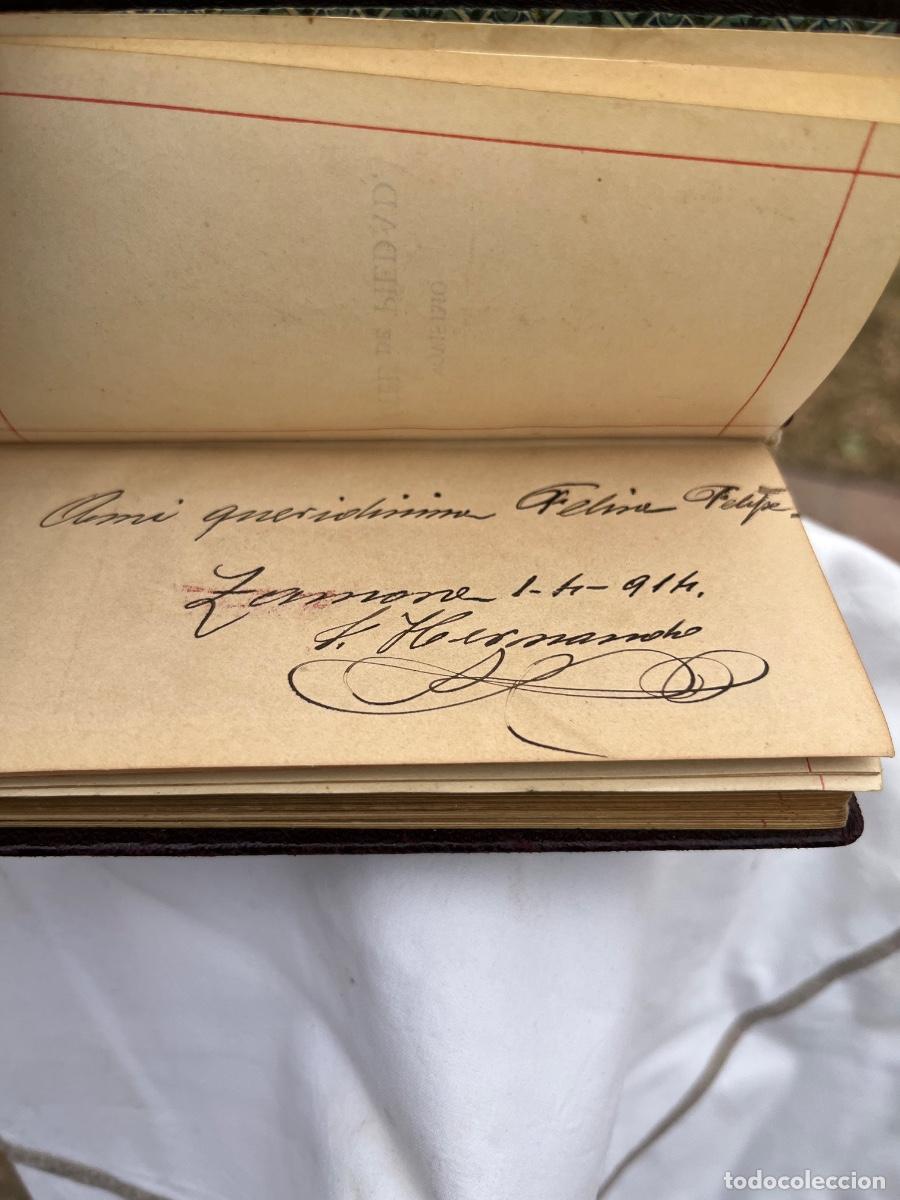 A mi queridisima Felisa Felipe
Zamora 1-4-914.
F. Hernando
todocoleccion